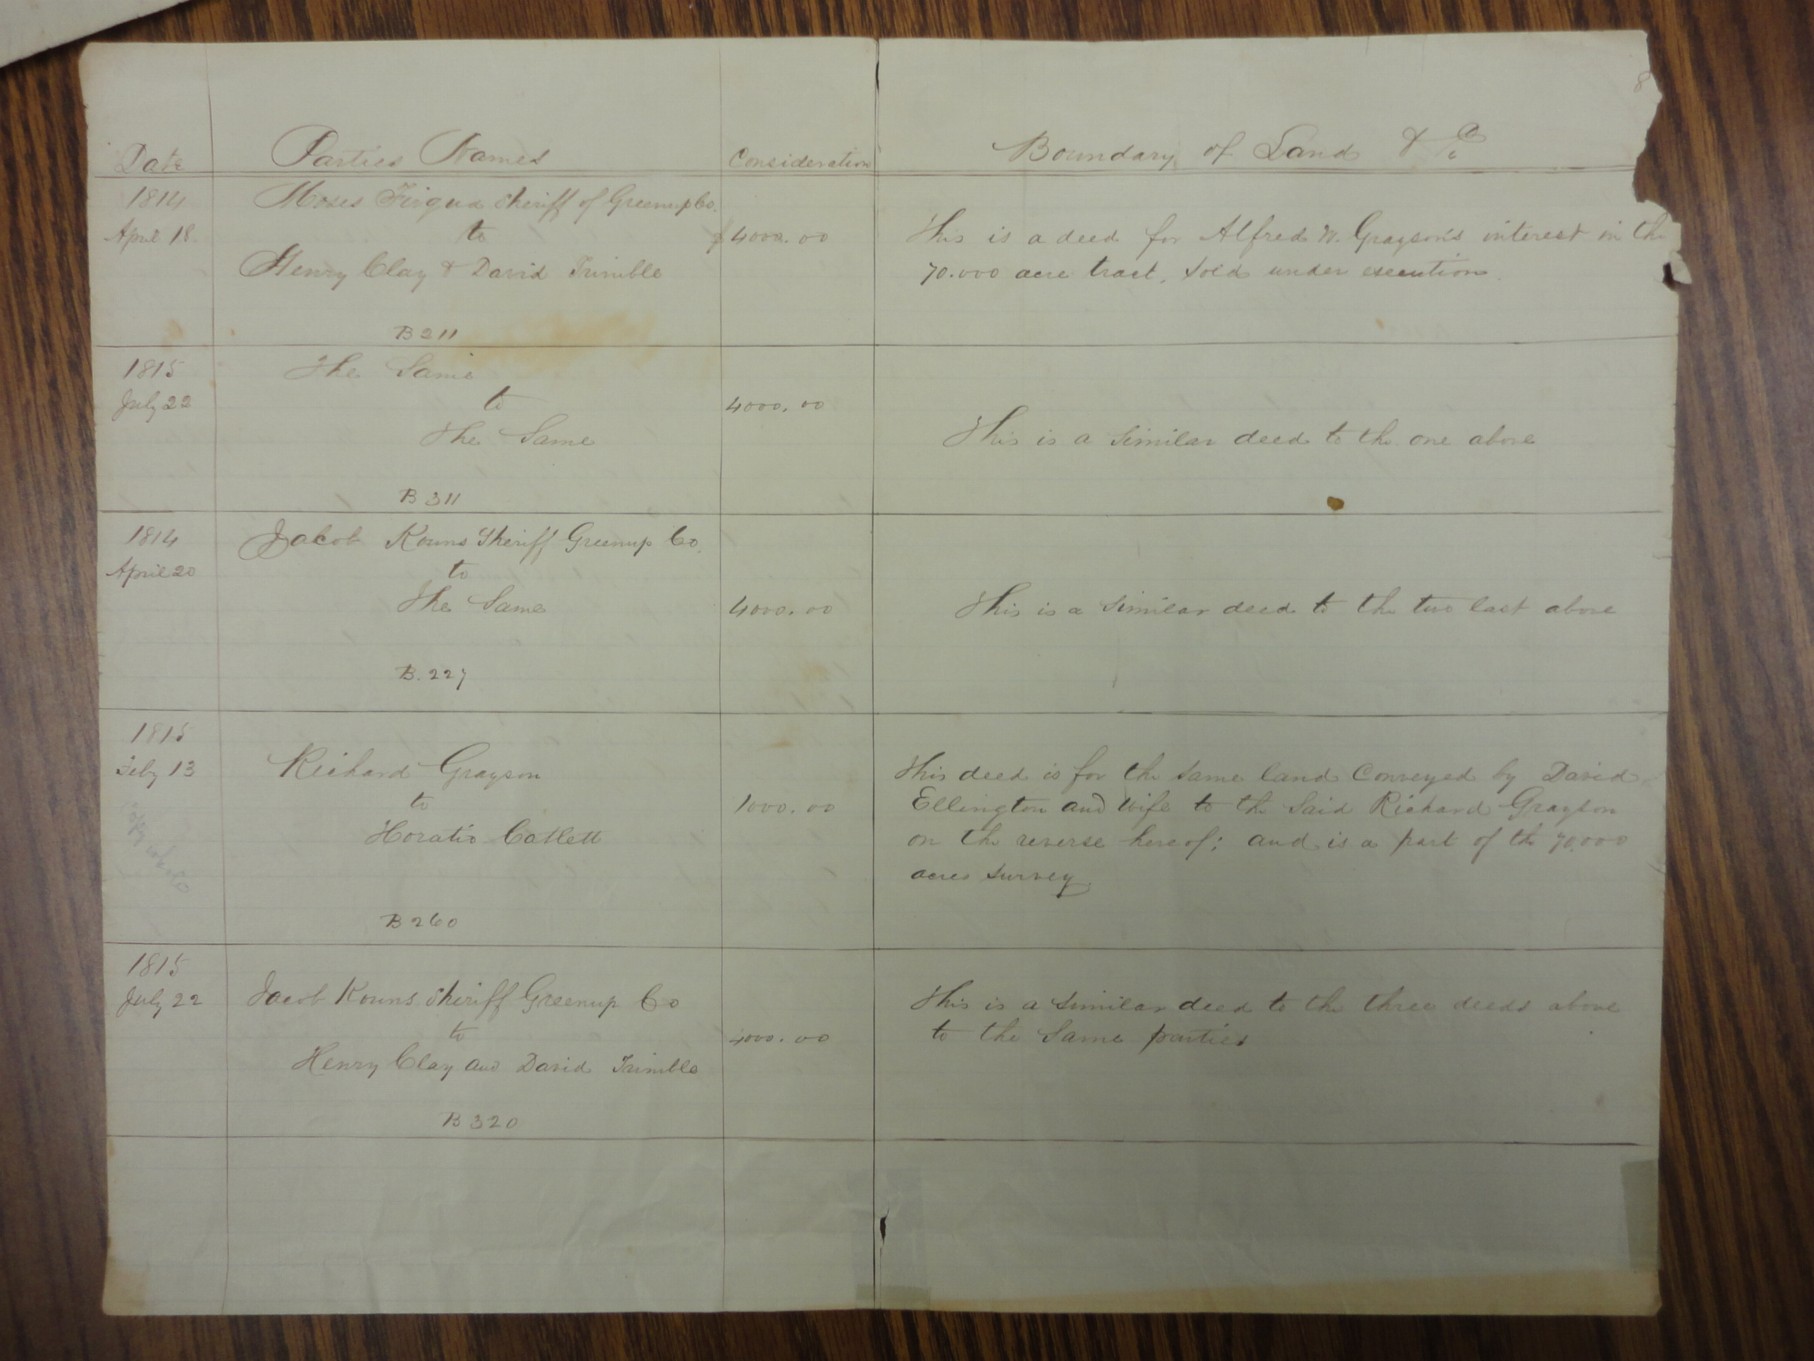 8
Date Parties Names Consideration Boundary of Land & c
1814 Moses Firqua Sheriff of Greenup Co.
April 18. to $4000.00 This is a deed for Alfred W. Grayson's interest in the
Henry Clay & David Trimble 70.000 acre tract, sold under execution.
B 211
1815 The Same
July 22 to 4000.00
The Same This is a similar deed to the one above
B 311
1814 Jacob Kouns Sheriff Greenup Co.
April 20 to
The Same 4000.00 This is a similar deed to the two last above
B. 227
1815
Feby 13 Richard Grayson This deed is for the same land conveyed by David
to 1000.00 Ellington and wife to the said Richard Grayson
Horatio Catlett on the reverse hereof; and is a part of the 70.000
acres survey
B 260
1815
July 22 Jacob Kouns Sheriff Greenup Co This is a similar deed to the three deeds above
to 4000.00 to the same parties
Henry Clay and David Trimble
B 320